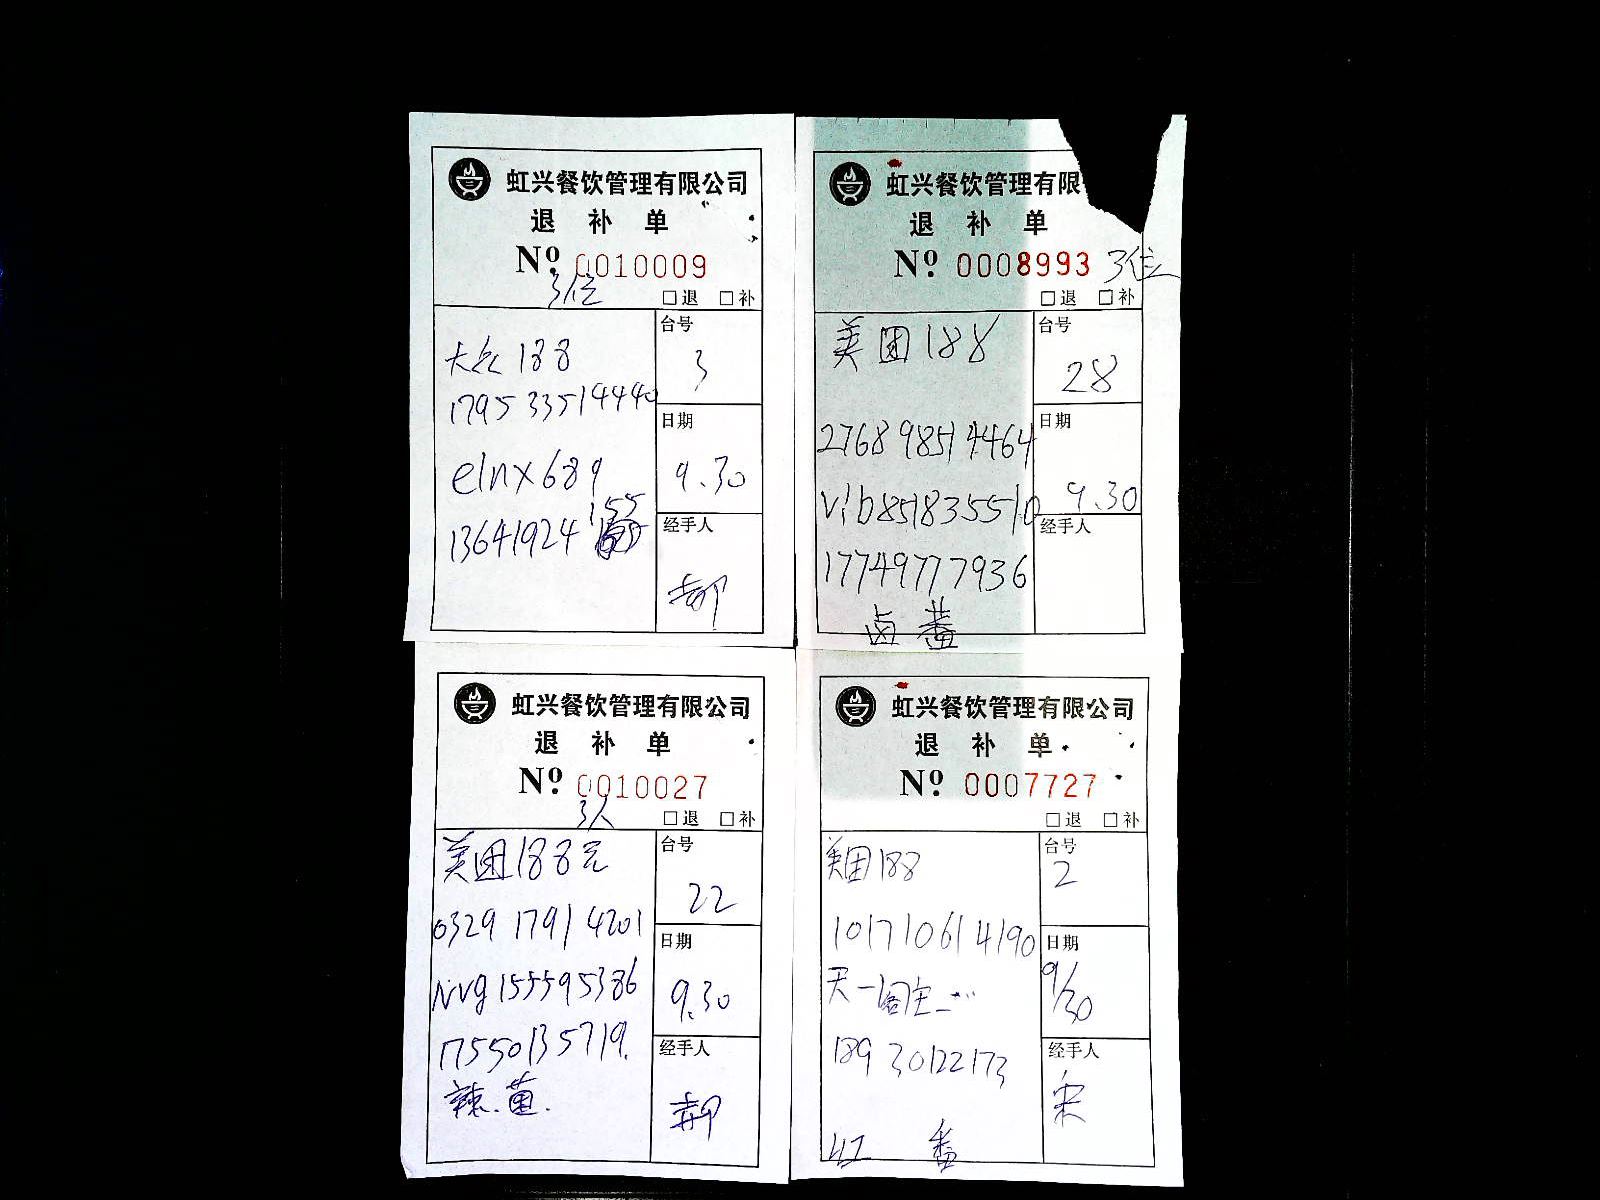 虹兴餐饮管理有限公司
退 补 单
Nº 0010009
3位
□退 □补
大众 188
1795 3351 4440
elnx689
13641924155
台号
3
日期
9.30
经手人
虹兴餐饮管理有限
退 补 单
Nº 0008993 3位
□退 □补
美团188
2768 9851 4464
vib851835510
17749777936
卤 蕃
台号
28
日期
9.30
经手人
虹兴餐饮管理有限公司
退 补 单
Nº 0010027
3人
□退 □补
美团188元
0329 1791 4201
Nvg155595386
17550135719.
辣. 菌.
台号
22
日期
9.30
经手人
虹兴餐饮管理有限公司
退 补 单
Nº 0007727
□退 □补
美团188
1017 1061 4190
天一阁主
189 30122173
红 番
台号
2
日期
9/30
经手人
宋